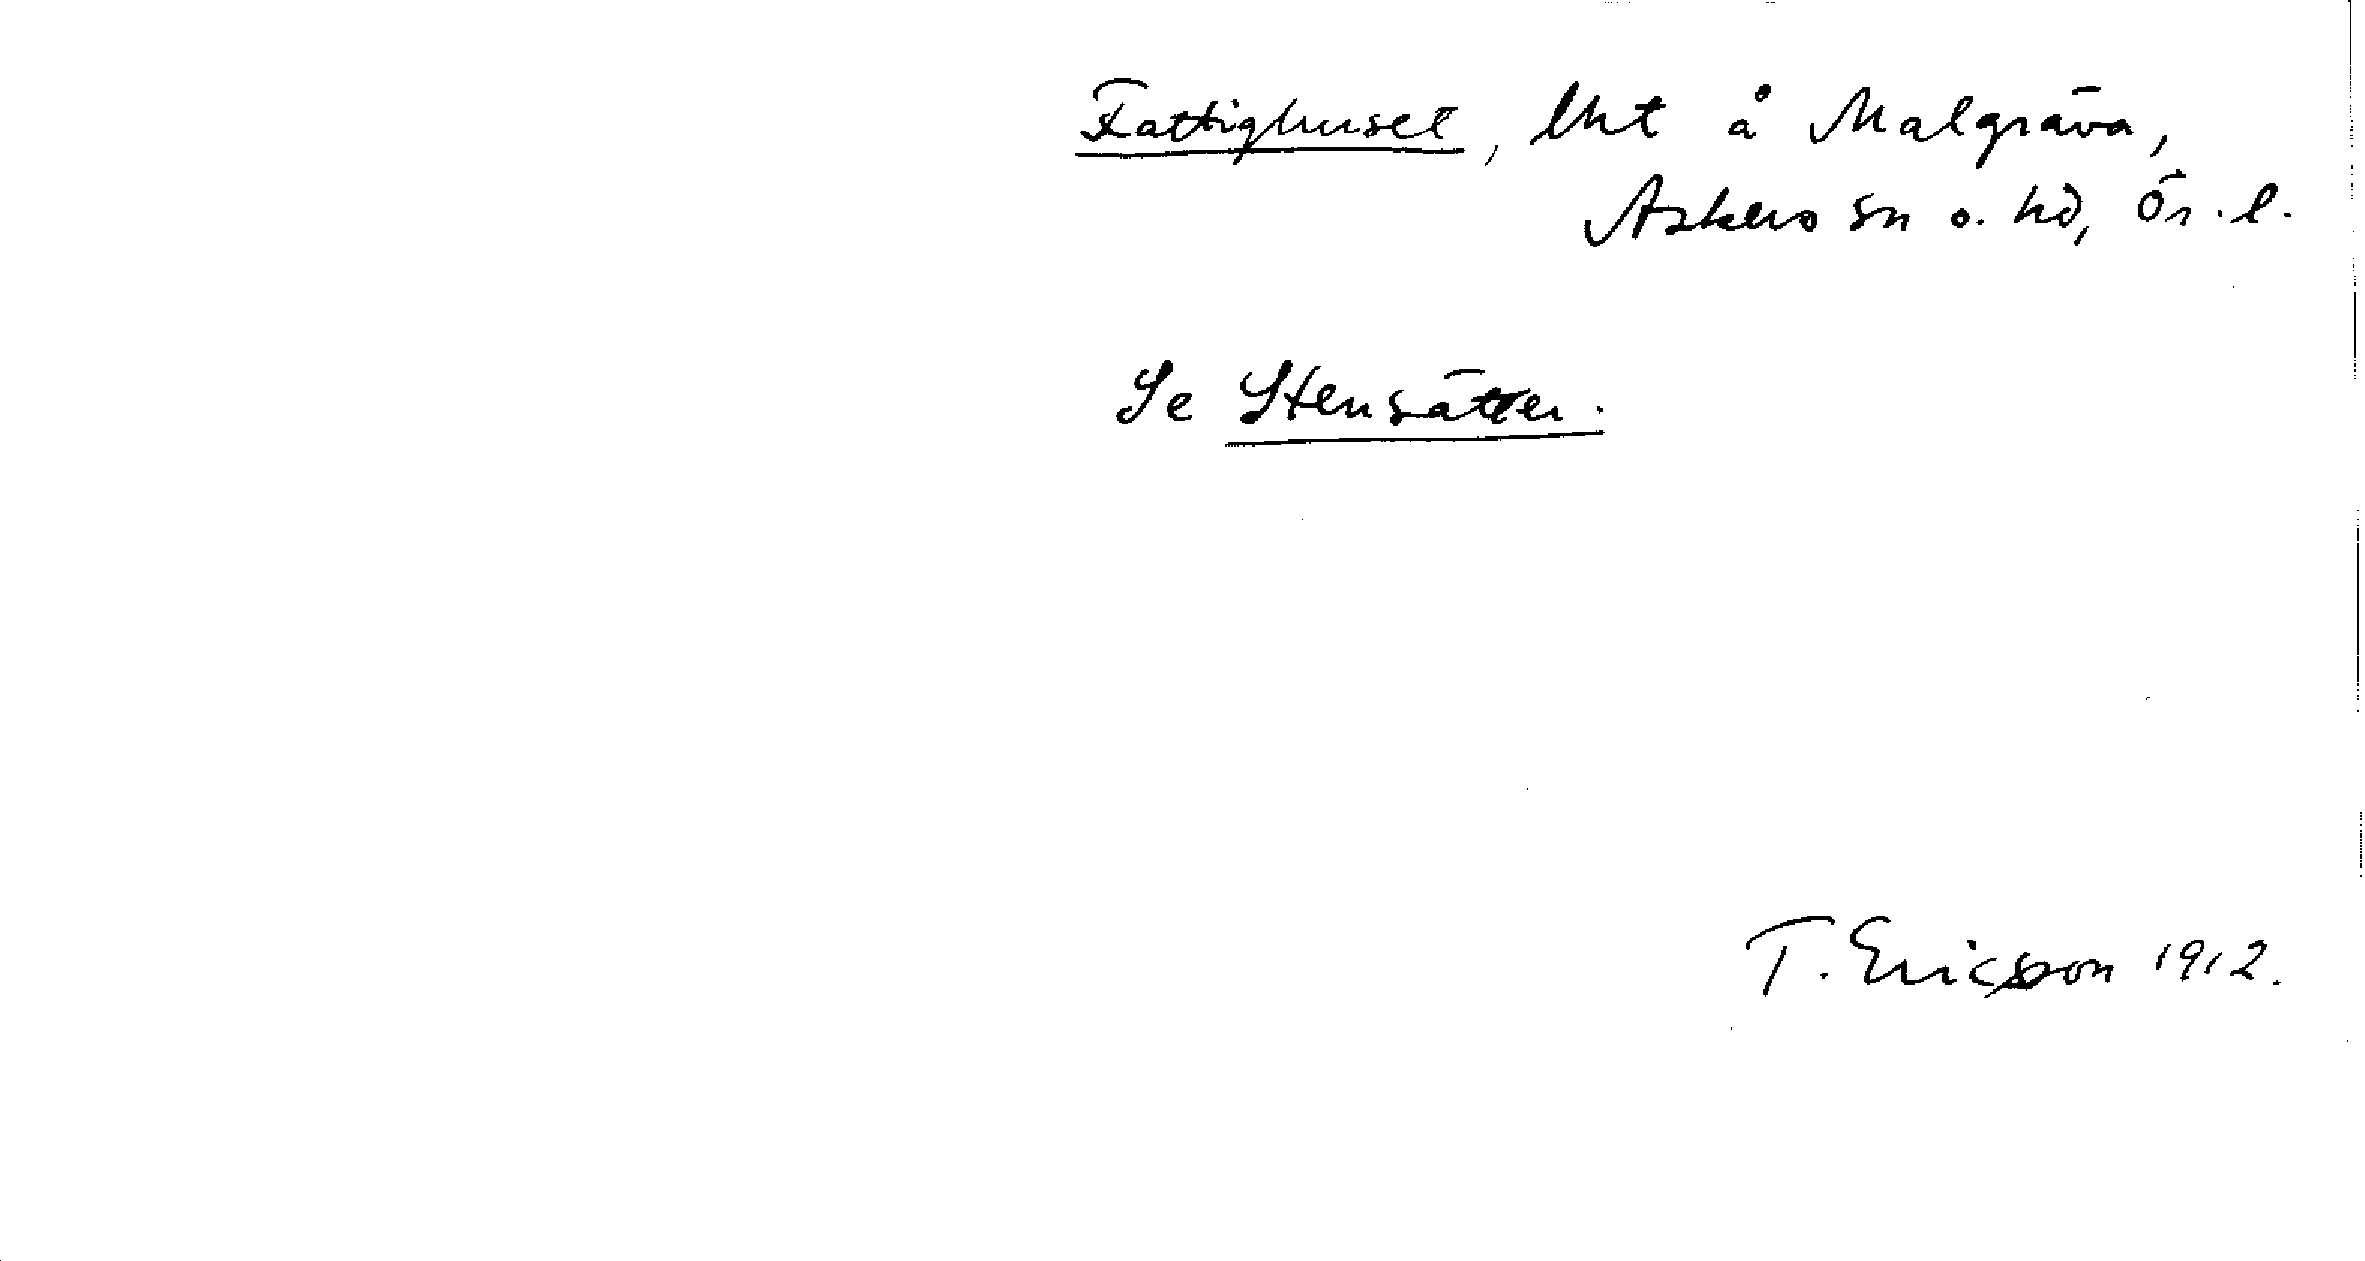 Fattighuset, lht å Malgräva,
Askers sn o. hd, Ör. l.
Se Stensätter.
T. Ericsson 1912.